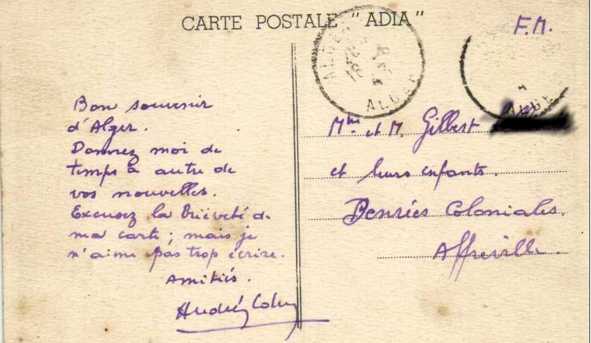 CARTE POSTALE "ADIA"
F.M.
ALGER
ALGER
Bon souvenir
d'Alger.
Donnez moi de
temps à autre de
vos nouvelles.
Excusez la brièveté de
ma carte; mais je
n'aime pas trop écrire.
Amitiés.
André
Mme et M. Gilbert
et leurs enfants.
Denrées Coloniales.
Affreville.